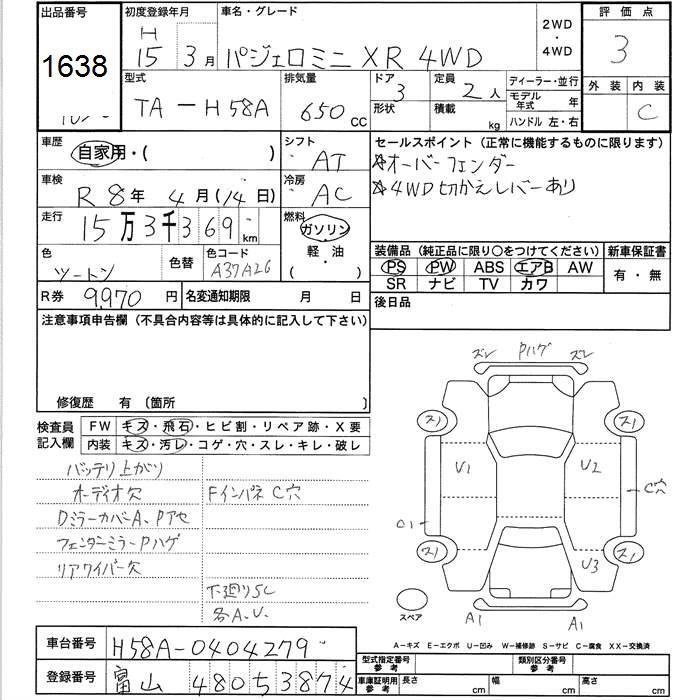 出品番号 初度登録年月 車名・グレード 2WD・4WD 評価点
1638 H 15 3月 パジェロミニ XR 4WD 3
型式 排気量 ドア 定員 ディーラー・並行 外装 内装
TA-H58A 650 CC 3 2人 モデル年式 年 C
形状 積載 kg ハンドル 左・右
車歴 自家用・( ) シフト AT セールスポイント (正常に機能するものに限ります)
☆オーバーフェンダー
車検 R8年 4月(14日) 冷房 AC ☆4WD切かえレバーあり
走行 15万3千369km 燃料 ガソリン 軽・油 ( )
色 ツートン 色替 色コード A37A26
装備品 (純正品に限り○をつけてください) 新車保証書
PS PW ABS エアB AW 有・無
SR ナビ TV カワ
R券 9970円 名変通知期限 月 日 後日品
注意事項申告欄 (不具合内容等は具体的に記入して下さい)
修復歴 有 〔箇所 〕
検査員記入欄 FW キズ・飛石・ヒビ割・リペア跡・X要
内装 キズ・汚レ・コゲ・穴・スレ・キレ・破レ
バッテリ上がり
オーディオ欠 Fインパネ C穴
DミラーカバーA、Pアセ
フェンダーミラーPハゲ
リアワイパー欠
下廻りSC
各A.U.
ズレ Pハゲ ズレ
スリ スリ
U1 U2
C穴
C1
スリ スリ
U3
スペア A1 A1
A-キズ E-エクボ U-凹み W-補修跡 S-サビ C-腐食 XX-交換済
車台番号 H58A-0404279
登録番号 富山 480 5 3874
型式指定番号 参考 類別区分番号 参考
車庫証明用 参考 長さ cm 幅 cm 高さ cm